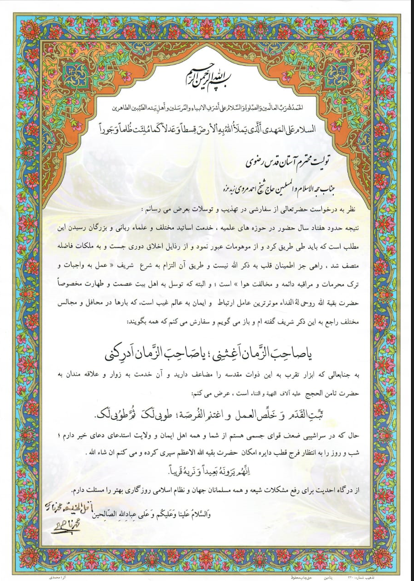 بسم الله الرحمن الرحیم
الحمد لله رب العالمین و الصلوة و السلام علی اشرف الانبیاء و المرسلین و اهل بیته الطیبین الطاهرین
السلام علی المهدی الذی یملأ الله به الأرض قسطاً و عدلاً کما مُلئت ظلماً و جوراً
تولیت محترم آستان قدس رضوی
جناب حجة الاسلام و المسلمین حاج شیخ احمد مروی زید عزه
نظر به درخواست حضرتعالی از سفارشی در تهذیب و توسلات بعرض می رسانم :
نتیجه حدود هفتاد سال حضور در حوزه های علمیه ، خدمت اساتید مختلف و علماء ربانی و بزرگان رسیدن این
مطلب است که باید طی طریق کرد و از موهومات عبور نمود و از رذایل اخلاق دوری جست و به ملکات فاضله
متصف شد ، راهی جز اطمینان قلب به ذکر الله نیست و طریق آن التزام به شرع شریف « عمل به واجبات و
ترک محرمات و مراقبه دائمه و مخالفت هوا » است ؛ و البته که توسل به اهل بیت عصمت و طهارت مخصوصاً
حضرت بقیة الله روحی لهُ الفداء موثرترین عامل ارتباط و ایمان به عالم غیب است، که بارها در محافل و مجالس
مختلف راجع به این ذکر شریف گفته ام و باز می گویم و سفارش می کنم که همه بگویند:
یاصاحِبَ الزَّمان اَغِثنی؛ یاصاحِبَ الزَّمان اَدرِکنی
به جنابعالی که ابزار تقرب به این ذوات مقدسه را مضاعف دارید و آن خدمت به زوار و علاقه مندان به
حضرت ثامن الحجج علیه آلاف التحیة و الثناء است ، عرض می کنم:
ثَبِّتِ القَدَم و خَلِّصِ العمل و اغتنم الفُرصَة؛ طوبی لَکَ ثُمَّ طُوبی لَک.
حال که در سراشیبی ضعف قوای جسمی هستم از شما و همه اهل ایمان و ولایت استدعای دعای خیر دارم ؛
شب و روز را به انتظار فرج قطب دایره امکان حضرت بقیه الله الاعظم سپری کرده و می کنم ان شاء الله .
اِنَّهُم یَرَونَهُ بَعیداً وَ نَریهُ قَریباً.
از درگاه احدیت برای رفع مشکلات شیعه و همه مسلمانان جهان و نظام اسلامی روزگاری بهتر را مسئلت دارم.
وَالسَّلامُ عَلَینا وَعَلَیکُم وَ عَلی عِبادِاللهِ الصّالِحین